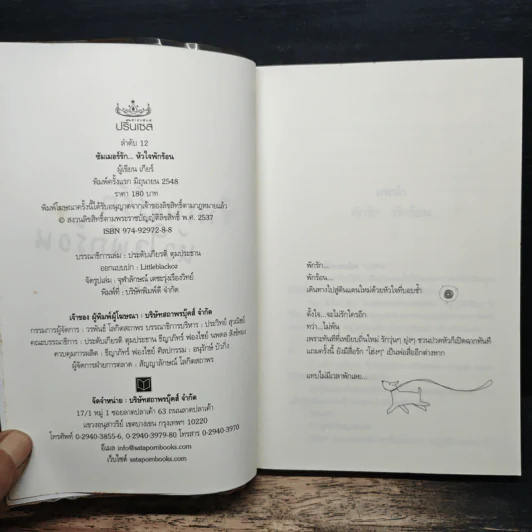 สำนักพิมพ์
ปริ๊นเซส
ลำดับ 12
ซัมเมอร์รัก... หัวใจพักร้อน
ผู้เขียน เกียร์
พิมพ์ครั้งแรก มิถุนายน 2548
ราคา 180 บาท
พิมพ์โฆษณาครั้งนี้ได้รับอนุญาตจากเจ้าของลิขสิทธิ์ตามกฎหมายแล้ว
© สงวนลิขสิทธิ์ตามพระราชบัญญัติลิขสิทธิ์ พ.ศ. 2537
ISBN 974-92972-8-8
บรรณาธิการเล่ม : ประดับเกียรติ ตุมประธาน
ออกแบบปก : Littleblackoz
จัดรูปเล่ม : จุฬาลักษณ์ เดชะรุ่งเรืองวิทย์
พิมพ์ที่ : บริษัทพิมพ์ดี จำกัด
เจ้าของ ผู้พิมพ์ผู้โฆษณา : บริษัทสถาพรบุ๊คส์ จำกัด
กรรมการผู้จัดการ : วรพันธ์ โลกิตสถาพร บรรณาธิการบริหาร : ประวิทย์ สุวณิชย์
คณะบรรณาธิการ : ประดับเกียรติ ตุมประธาน ธีญาภัทร์ ฟองไชย์ นพดล สังข์ทอง
ควบคุมการผลิต : ธีญาภัทร์ ฟองไชย์ ศิลปกรรม : อนุรักษ์ บัวกิ่ง
ผู้จัดการฝ่ายการตลาด : สัญญาลักษณ์ โลกิตสถาพร
จัดจำหน่าย : บริษัทสถาพรบุ๊คส์ จำกัด
17/1 หมู่ 1 ซอยลาดปลาเค้า 63 ถนนลาดปลาเค้า
แขวงอนุสาวรีย์ เขตบางเขน กรุงเทพฯ 10220
โทรศัพท์ 0-2940-3855-6, 0-2940-3979-80 โทรสาร 0-2940-3970
อีเมล info@satapornbooks.com
เว็บไซต์ satapornbooks.com
พักรัก...
พักร้อน...
เดินทางไปสู่ดินแดนใหม่ด้วยหัวใจที่บอบช้ำ
ตั้งใจ...จะไม่รักใครอีก
ทว่า...ไม่พ้น
เพราะทันทีที่เหยียบถิ่นใหม่ รักวุ่นๆ ยุ่งๆ ชวนปวดหัวก็เปิดฉากทันที
แถมครั้งนี้ ยังมีสื่อรัก "โฮ่งๆ" เป็นพ่อสื่ออีกต่างหาก
แทบไม่มีเวลาพักเลย...